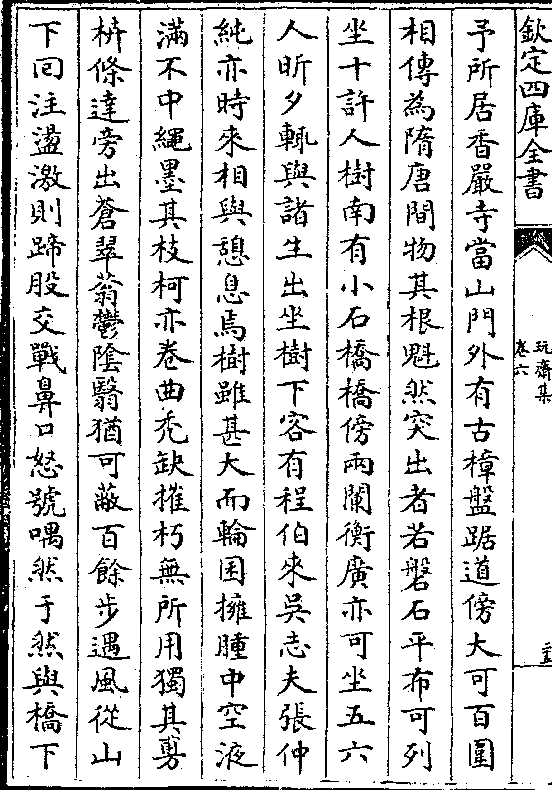 欽定四庫全書
玩齋集
卷六
予所居香嚴寺當山門外有古樟盤踞道傍大可百圍
相傳為隋唐間物其根魁然突出者若磐石平布可列
坐十許人樹南有小石橋橋傍兩闌衡廣亦可坐五六
人昕夕輒與諸生出坐樹下客有程伯來吳志夫張仲
純亦時來相與憩息焉樹雖甚大而輪囷擁腫中空液
滿不中繩墨其枝柯亦卷曲禿缺摧朽無所用獨其旁
枿條達旁出蒼翠蓊鬱陰翳猶可蔽百餘步遇風從山
下回注盪激則蹄股交戰鼻口怒號喁然于然與橋下